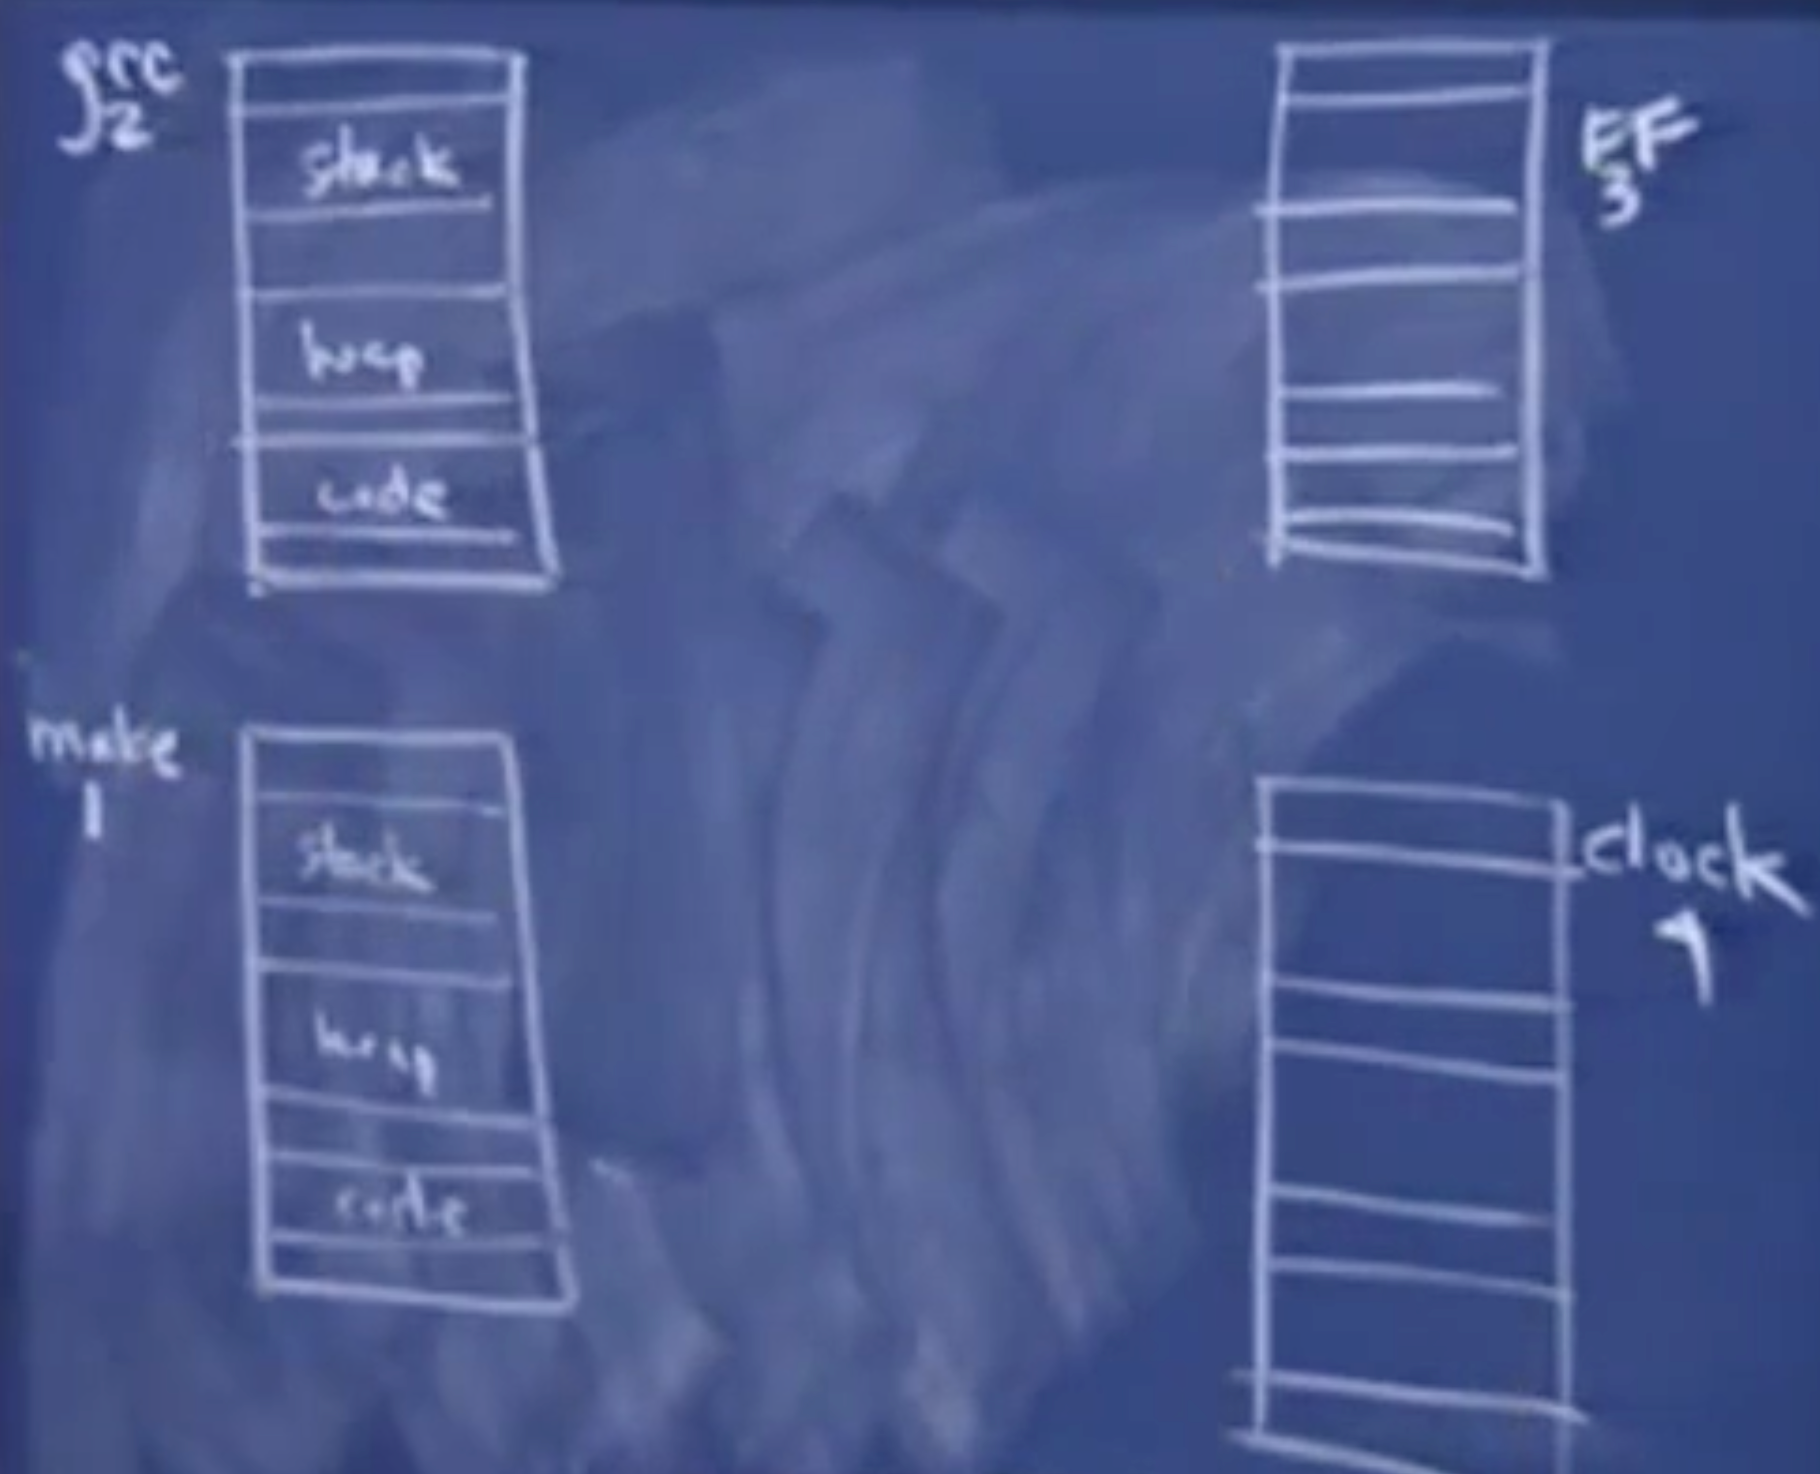 gcc
2
stack
heap
code
FF
3
make
1
stack
heap
code
clock
7